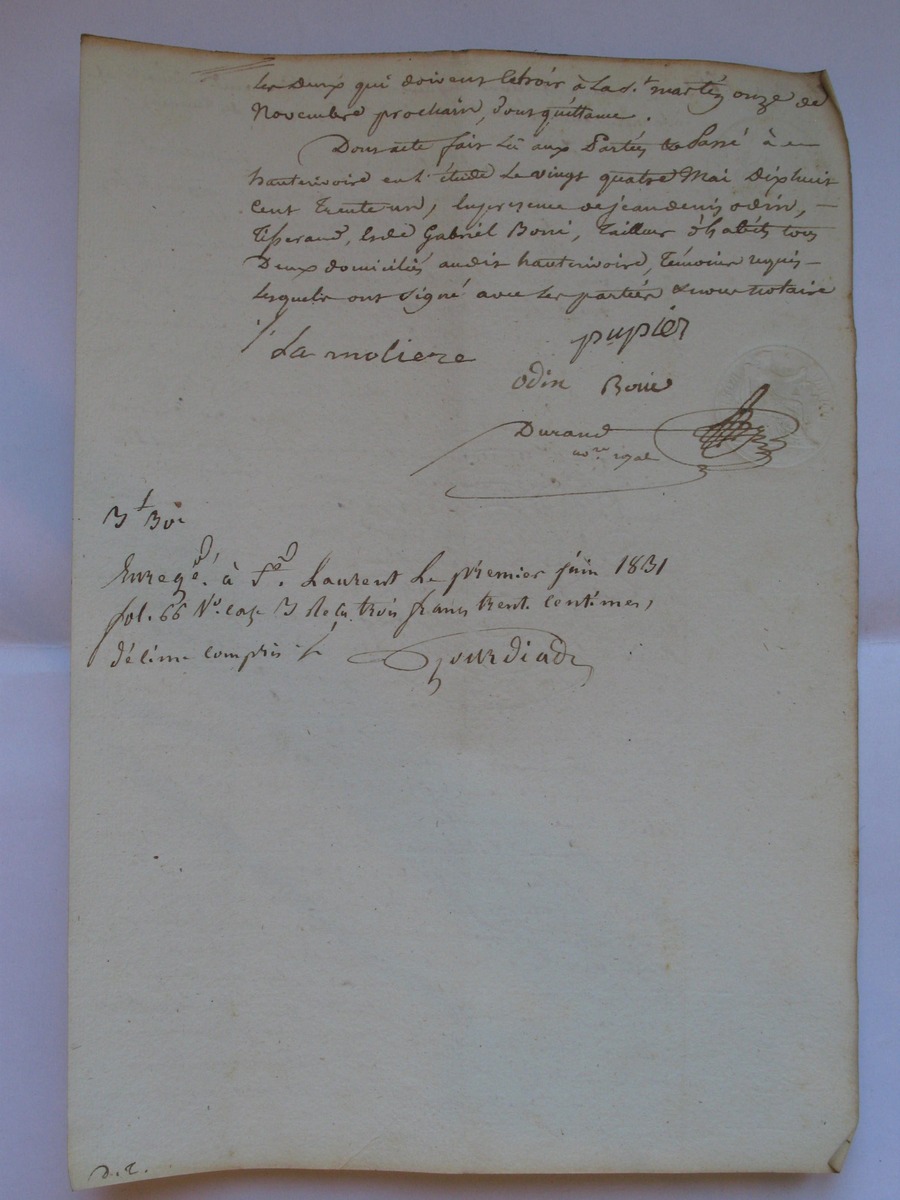 les deux qui doivent échoir à la St martin onze de
Novembre prochain, Dont quittance.
Dont acte fait lû aux Parties & Passé à
hauterivoire en l'étude Le vingt quatre Mai Dix huit
Cent Trente un, En presence de jean denis odin, —
Tisserand, & de Gabriel Boni, Tailleur d'habits tous
Deux domiciliés audit hauterivoire, Témoins requis —
Lesquels ont signé avec les parties & nous notaire
La moliere
pupier
odin
Durand
nore royal
3f 30c
Enregé. à St. Laurent Le premier juin 1831
fol. 66 Vo. case 3 Recu trois francs trent. centimes,
décime compris
d. r.